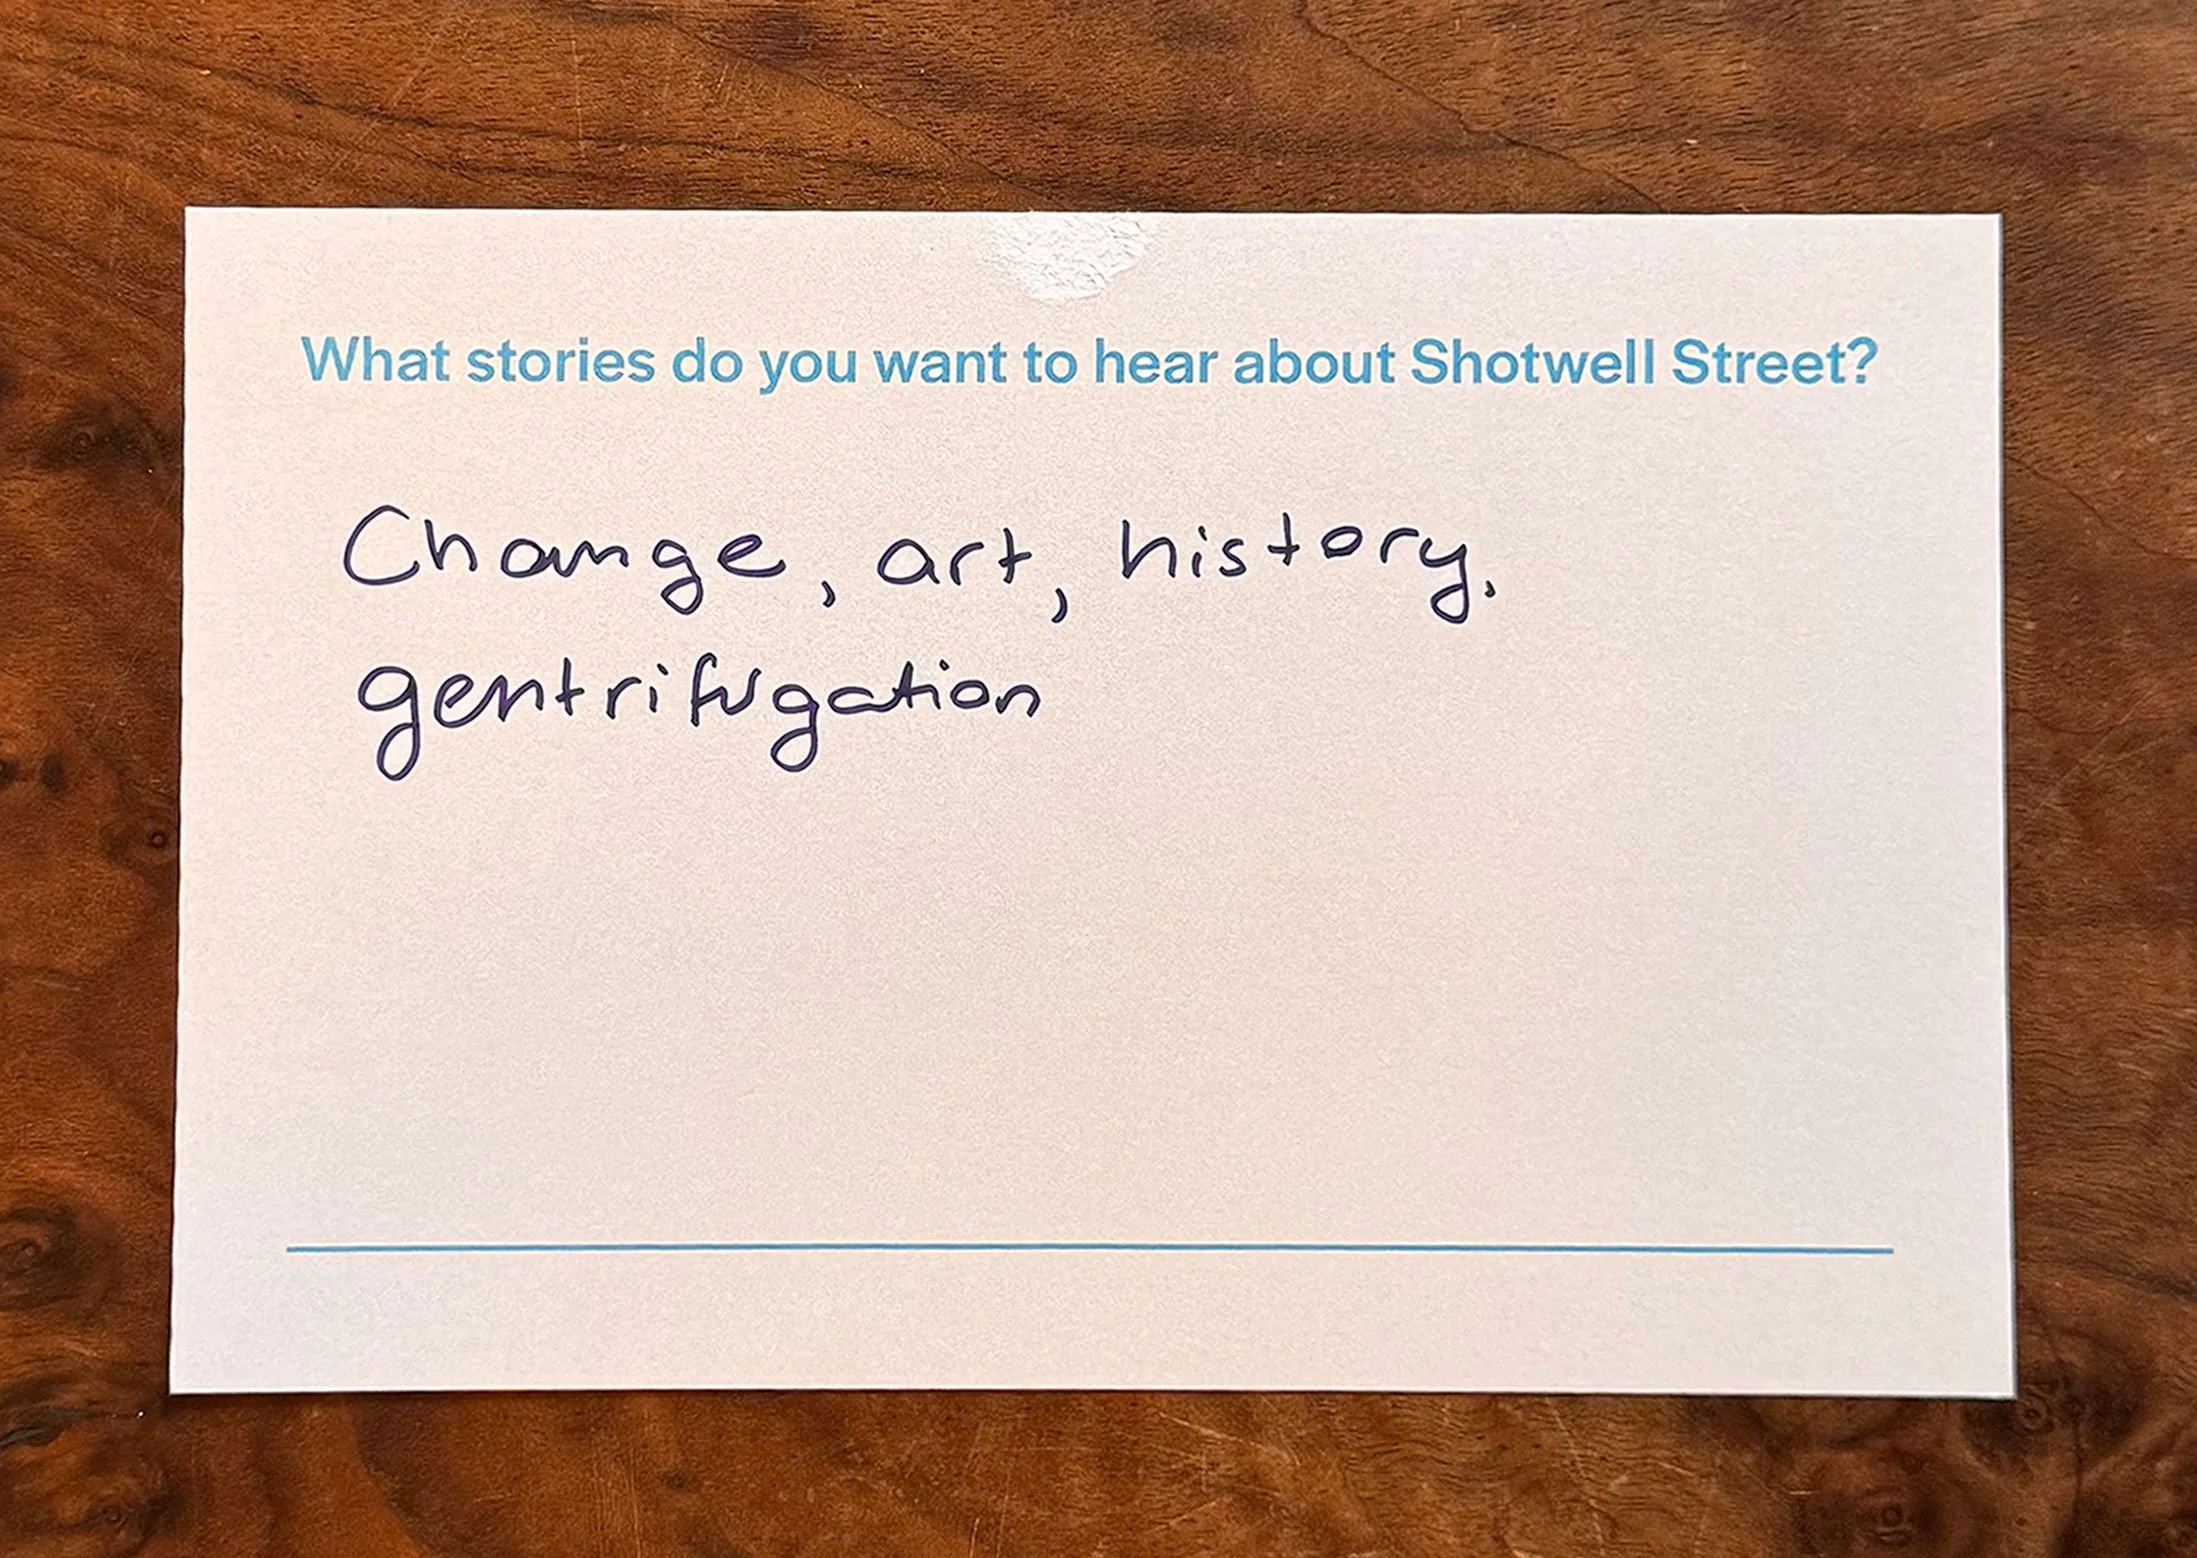 What stories do you want to hear about Shotwell Street?
Change, art, history,
gentrifugation